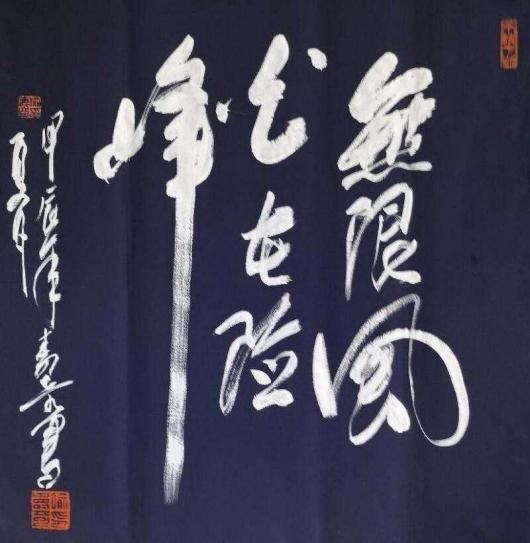 無限風
光在险
峰
甲辰年
夏月